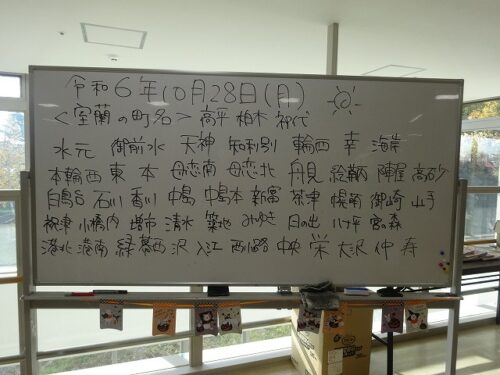 令和6年10月28日(月)
<室蘭の町名> 高平 柏木 知代
水元 御前水 天神 知利別 輪西 幸 海岸
本輪西 東 本 母恋南 母恋北 舟見 絵鞆 陣屋 高砂
白鳥台 石川 香川 中島 中島本 新富 茶津 幌萌 御崎 山手
祝津 小橋内 増市 清水 築地 みゆき 日の出 八丁平 宮の森
港北 港南 緑 葛西 沢 入江 西小路 中央 栄 大沢 仲 寿